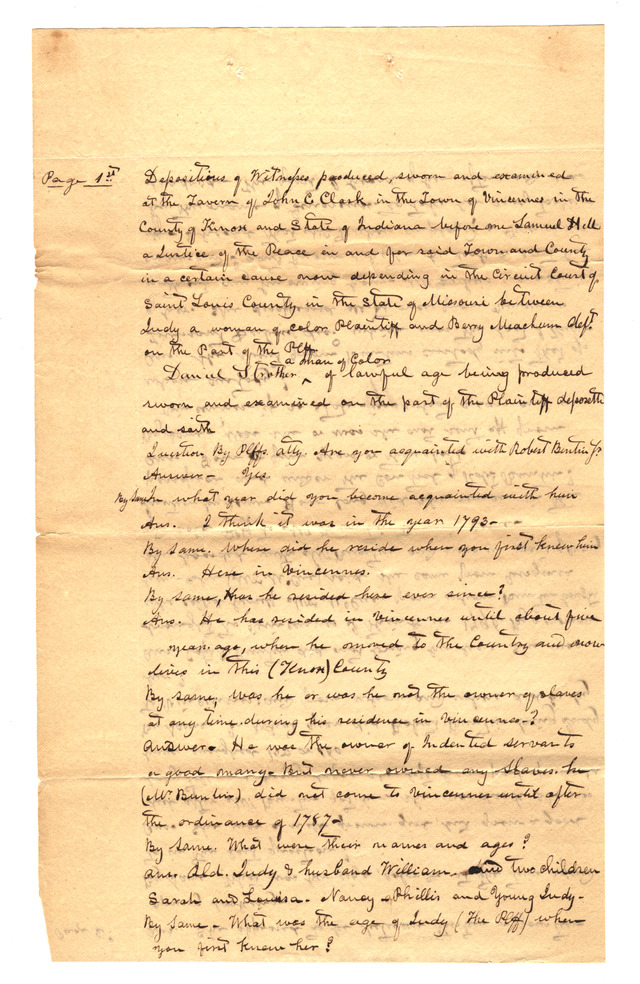 Page 1st Depositions of Witnesses produced, sworn and examined
at the Tavern of John C Clark in the Town of Vincennes in the
County of Knox and State of Indiana before me Samuel Hill
a Justice of the Peace in and for said Town and County
in a certain cause now depending in the Circuit Court of
Saint Louis County in the State of Missouri between
Judy a woman of color Plaintiff and Berry Meachum Deft.
on the Part of the Plff
a man of Color
Daniel Strother ^ of lawful age being produced
sworn and examined on the part of the Plaintiff deposeth
and saith
Question By Plffs. atty. Are you acquainted with Robert Buntin Jr
Answer - Yes
By Same In what year did you become acquainted with him
Ans. I think it was in the year 1793 -
By same. Where did he reside when you first knew him
Ans. Here in Vincennes.
By same, Has he resided here ever since?
Ans. He has resided in Vincennes until about five
years ago, when he moved to the Country and now
lives in this (Knox) County
By same, Was he or was he not the owner of slaves
at any time during his residence in Vincennes -?
Answer - He was the owner of Indented servants
a good many - But never owned any slaves. he
(Mr. Buntin) did not come to Vincennes until after
the ordinance of 1787 -
By Same. What were their names and ages?
Ans. Old. Judy & husband William. and two children
Sarah and Louisa. Nancy - Phillis and Young Judy -
By Same - What was the age of Judy (The Plff) when
you first knew her?